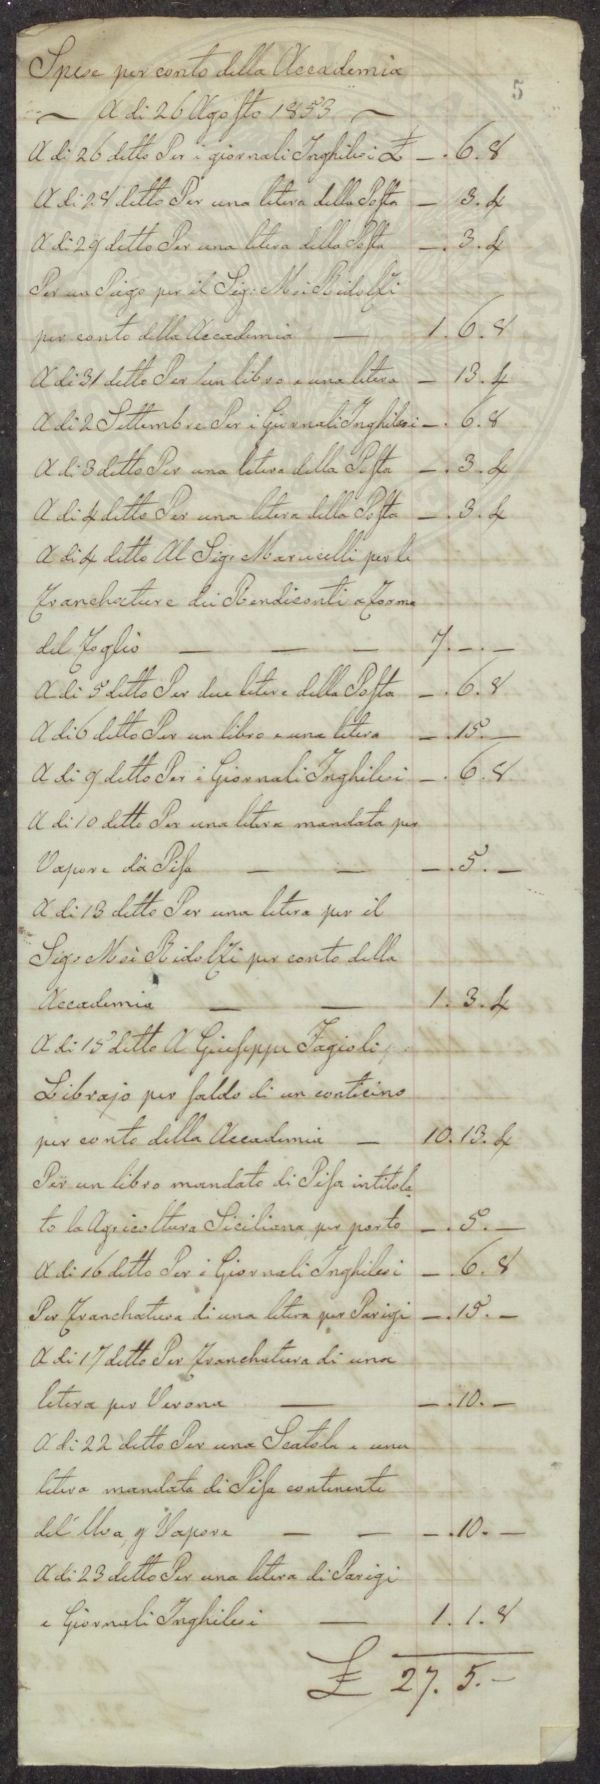 Spese per conto della Accademia
5
~ A di 26 Agosto 1853 ~
A di 26 detto Per i giornali Inghilesi £ —. 6. 8
A di 28 detto Per una letera della Posta — 3. 4
A di 29 detto Per una letera della Posta —. 3. 4
Per un Piego per il Sig: Mse Ridolfi
per conto della Accademia — 1. 6. 8
A di 31 detto Per un libro e una letera — 13. 4
A di 2 Settembre Per i Giornali Inghilesi —. 6. 8
A di 3 detto Per una letera della Posta —. 3. 4
A di 4 detto Per una letera della Posta —. 3. 4
A di 4 detto Al Sig: Marucelli per le
Franchature dei Rendiconti a forma
del Foglio — — — 7. —. —
A di 5 detto Per due letere della Posta —. 6. 8
A di 6 detto Per un libro e una letera —. 15. —
A di 9 detto Per i Giornali Inghilesi —. 6. 8
A di 10 detto Per una letera mandata per
Vapore da Pisa — — —. 5. —
A di 13 detto Per una letera per il
Sig: Mse Ridolfi per conto della
Accademia — — 1. 3. 4
A di 15 detto A Giuseppe Fagioli
Librajo per saldo di un conticino
per conto della Accademia — 10. 13. 4
Per un libro mandato di Pisa intitola
to la Agricoltura Siciliana, per porto —. 5. —
A di 16 detto Per i Giornali Inghilesi —. 6. 8
Per Franchatura di una letera per Parigi —. 15. —
A di 17 detto Per Franchatura di una
letera per Verona — —. 10. —
A di 22 detto Per una Scatola e una
letera mandata di Pisa continente
del' Uva, p Vapore — — —. 10. —
A di 23 detto Per una letera di Parigi
e Giornali Inghilesi — 1. 1. 8
£ 27. 5. —